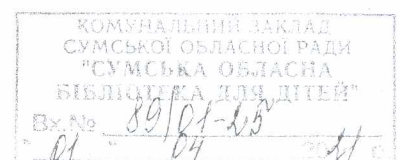 КОМУНАЛЬНИЙ ЗАКЛАД
СУМСЬКОЇ ОБЛАСНОЇ РАДИ
"СУМСЬКА ОБЛАСНА
БІБЛІОТЕКА ДЛЯ ДІТЕЙ"
Вх.№ 89/01-25
"01" 04 2021 р